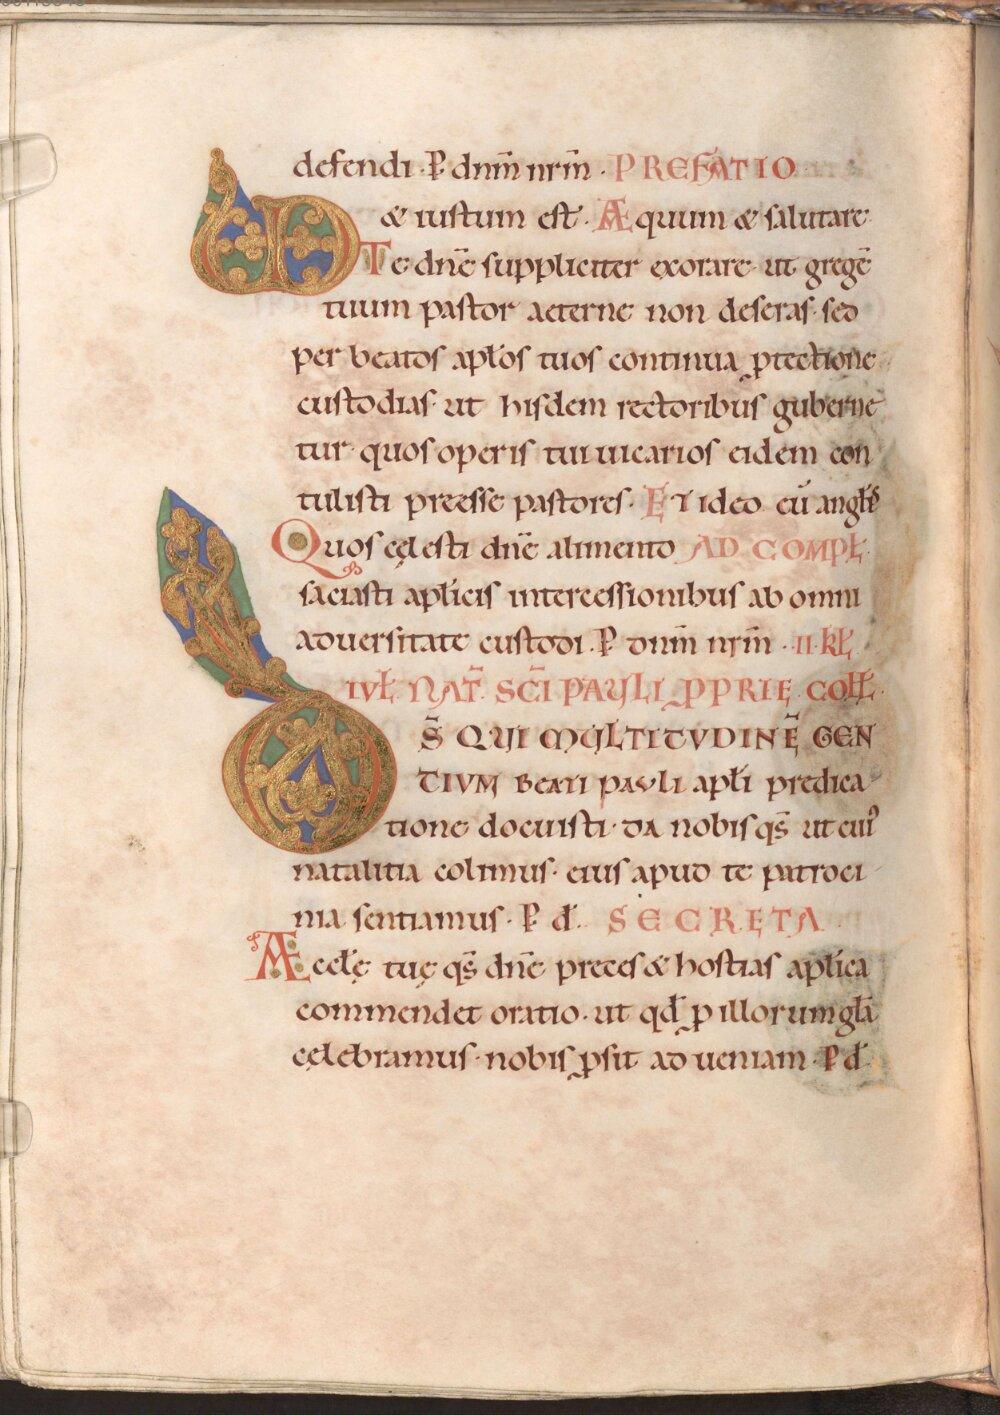 defendi · P̲ dnm̄ nrm̄ · PREFATIO
VD & iustum est̄ · Æquum & salutare
Te dnē suppliciter exorare · ut gregē
tuum pastor aeterne non deseras · sed
per beatos apłos tuos continua ꝓtectione
custodias · ut hisdem rectoribus guberne
tur · quos operis tui uicarios eidem con
tulisti preesse pastores · ET ideo cū angłis
Quos cęlesti dnē alimento AD COMPŁ ·
saciasti apłicis intercessionibus ab omni
aduersitate custodi · P̲ dnm̄ nrm̄ · II · KŁ
IVŁ NAT̄ · SC̄I PAULI PPRIĘ COLŁ ·
DS̄ QUI MULTITVDINĒ GEN
TIVM BEATI PAULI apłi predica
tione docuisti · da nobis qs̄ ut cui᾿
natalitia colimus · eius apud te patroci
nia sentiamus · P̲ đ · SECRETA
Æcclę tuę qs̄ dnē preces & hostias apłica
commendet oratio · ut qđ ꝓ illorum gła
cęlebramus · nobis ꝓsit ad ueniam · P̲ đ